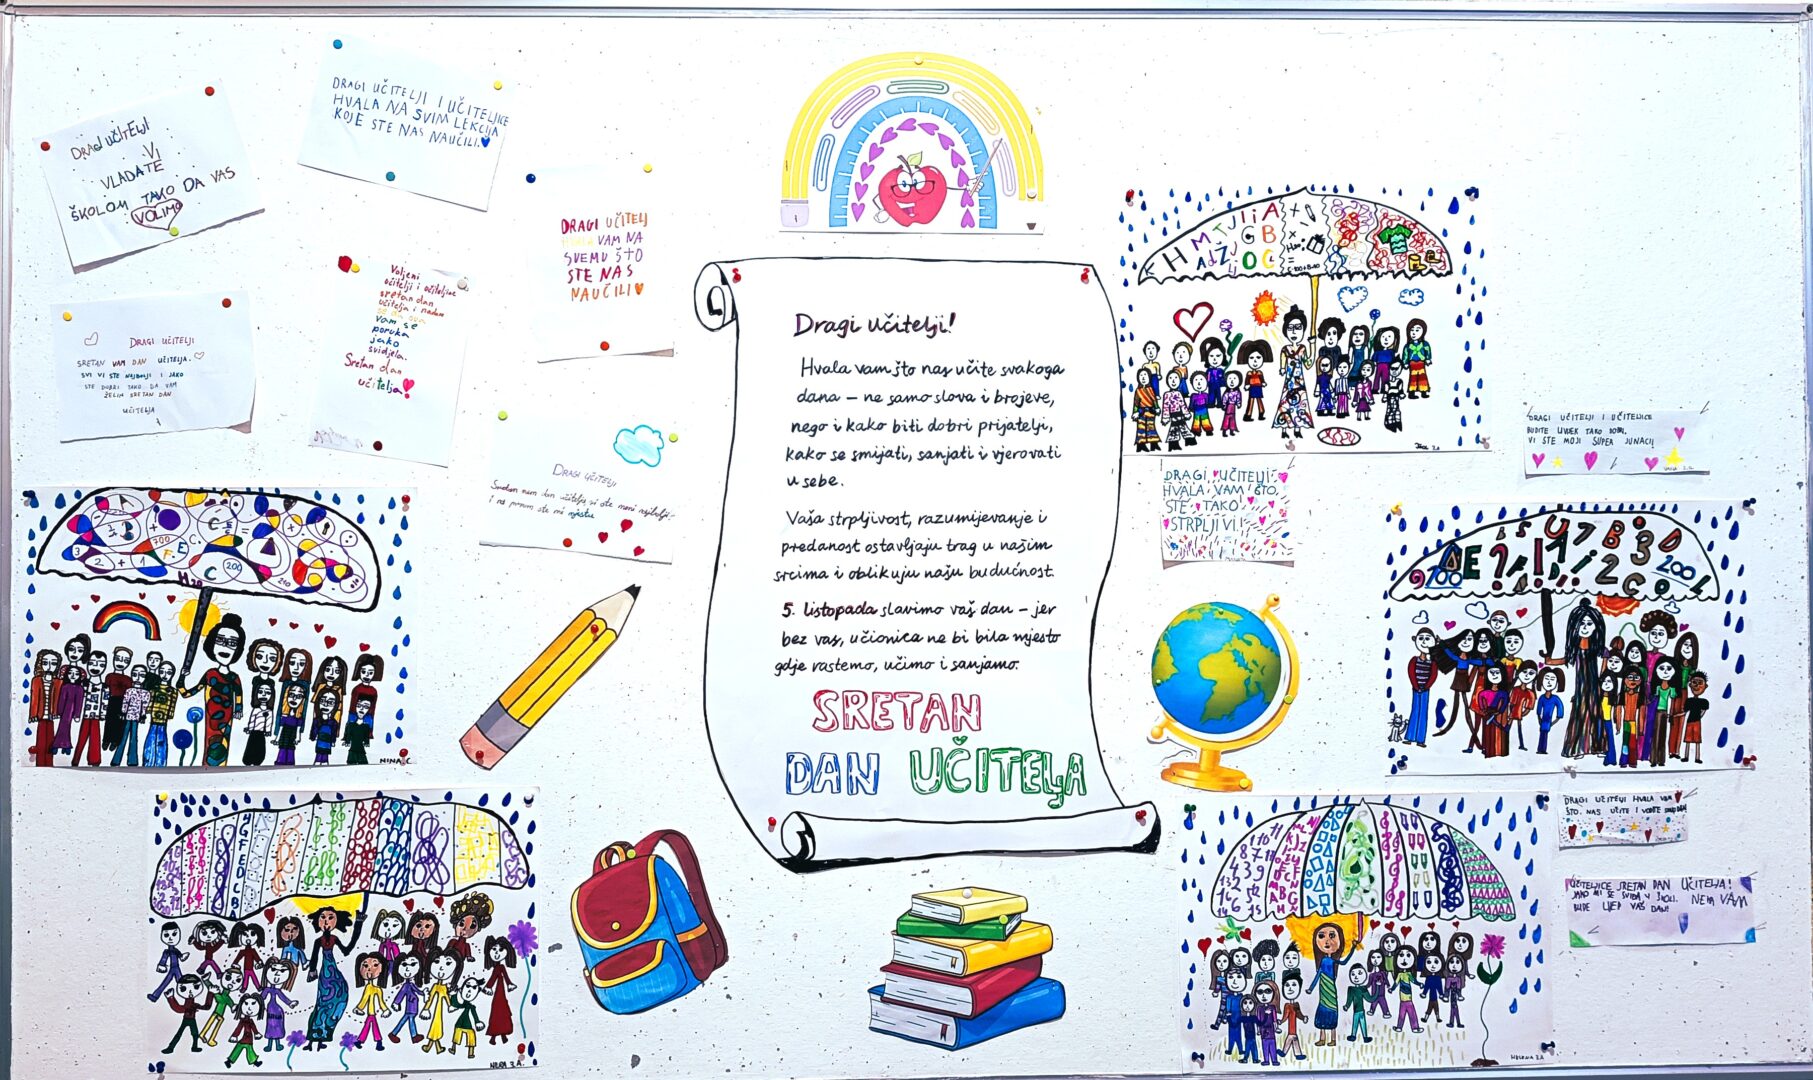 DRAGI UČITELJI
VI
VLADATE
ŠKOLOM TAKO DA VAS
VOLIMO
DRAGI UČITELJI I UČITELJICE
HVALA NA SVIM LEKCIJA
KOJE STE NAS NAUČILI.
DRAGI UČITELJ
HVALA VAM NA
SVEMU ŠTO
STE NAS
NAUČILI
DRAGI UČITELJI
SRETAN VAM DAN UČITELJA.
SVI VI STE NAJBOLJI I JAKO
STE DOBRI TAKO DA VAM
ŽELIM SRETAN DAN
UČITELJA
Voljeni
učitelji i učiteljice
sretan dan
učitelja i nadam
se da ova
vam se
poruka
jako
svidjela.
Sretan dan
učitelja
DRAGI UČITELJI
Sretan vam dan učitelja vi ste meni najbolji
i na prvom ste mi mjestu
Dragi učitelji!
Hvala vam što nas učite svakoga
dana – ne samo slova i brojeve,
nego i kako biti dobri prijatelji,
kako se smijati, sanjati i vjerovati
u sebe.
Vaša strpljivost, razumijevanje i
predanost ostavljaju trag u našim
srcima i oblikuju našu budućnost.
5. listopada slavimo vaš dan – jer
bez vas, učionica ne bi bila mjesto
gdje rastemo, učimo i sanjamo.
SRETAN
DAN UČITELJA
DRAGI UČITELJI
HVALA VAM ŠTO,
STE TAKO
STRPLJIVI!
DRAGI UČITELJI I UČITELJICE
BUDITE UVIJEK TAKO DOBRI.
VI STE MOJI SUPER JUNACI!
DRAGI UČITELJI HVALA VAM
ŠTO NAS UČITE I VODITE
UČITELJICE SRETAN DAN UČITELJA!
JAKO MI SE SVIĐA U ŠKOLI. NEKA VAM
BUDE LIJEP VAŠ DAN!
NINA C
NERA 2.A.
HELENA 2.A